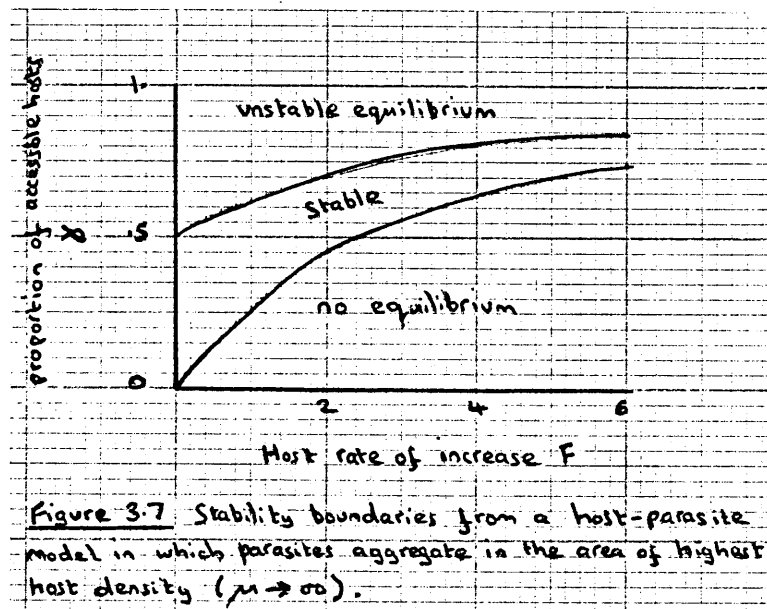 proportion of accessible hosts
1.
unstable equilibrium
stable
.5
no equilibrium
0
2 4 6
Host rate of increase F
Figure 3.7 Stability boundaries from a host-parasite
model in which parasites aggregate in the area of highest
host density (μ → ∞).